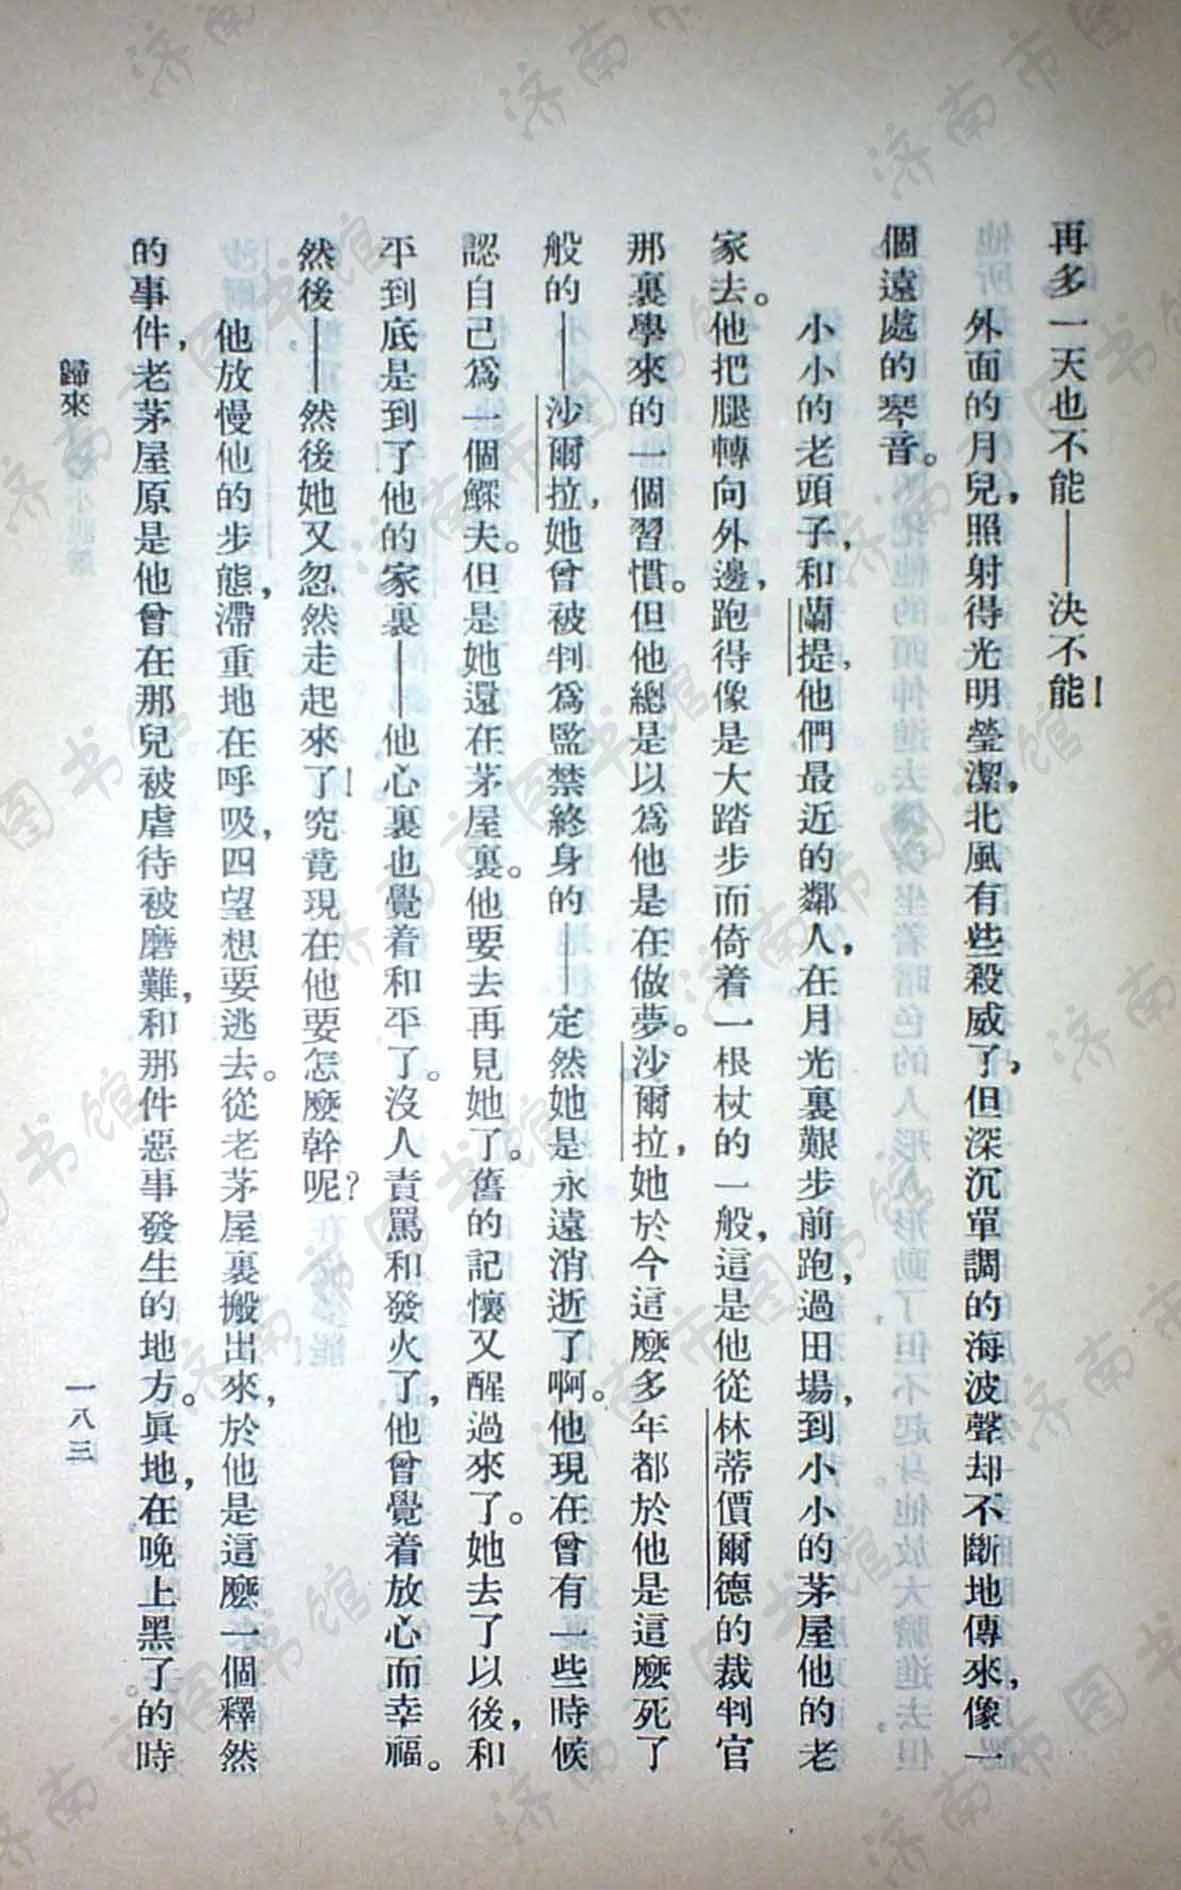 再多一天也不能——決不能！
外面的月兒，照射得光明瑩潔，北風有些殺威了，但深沉單調的海波聲却不斷地傳來，像一
個遠處的琴音。
小小的老頭子，和蘭提，他們最近的鄰人，在月光裏艱步前跑，過田場，到小小的茅屋他的老
家去。他把腿轉向外邊，跑得像是大踏步而倚着一根杖的一般，這是他從林蒂價爾德的裁判官
那裏學來的一個習慣。但他總是以爲他是在做夢。沙爾拉，她於今這麼多年都於他是這麼死了
般的——沙爾拉，她曾被判爲監禁終身的——定然她是永遠消逝了啊。他現在曾有一些時候
認自己爲一個鰥夫。但是她還在茅屋裏。他要去再見她了。舊的記懷又醒過來了。她去了以後，和
平到底是到了他的家裏——他心裏也覺着和平了。沒人責罵和發火了，他曾覺着放心而幸福。
然後——然後她又忽然走起來了！究竟現在他要怎麼幹呢？
他放慢他的步態，滯重地在呼吸，四望想要逃去。從老茅屋裏搬出來，於他是這麼一個釋然
的事件，老茅屋原是他曾在那兒被虐待被磨難，和那件惡事發生的地方。眞地，在晚上黑了的時
歸來
一八三
济南市图书馆